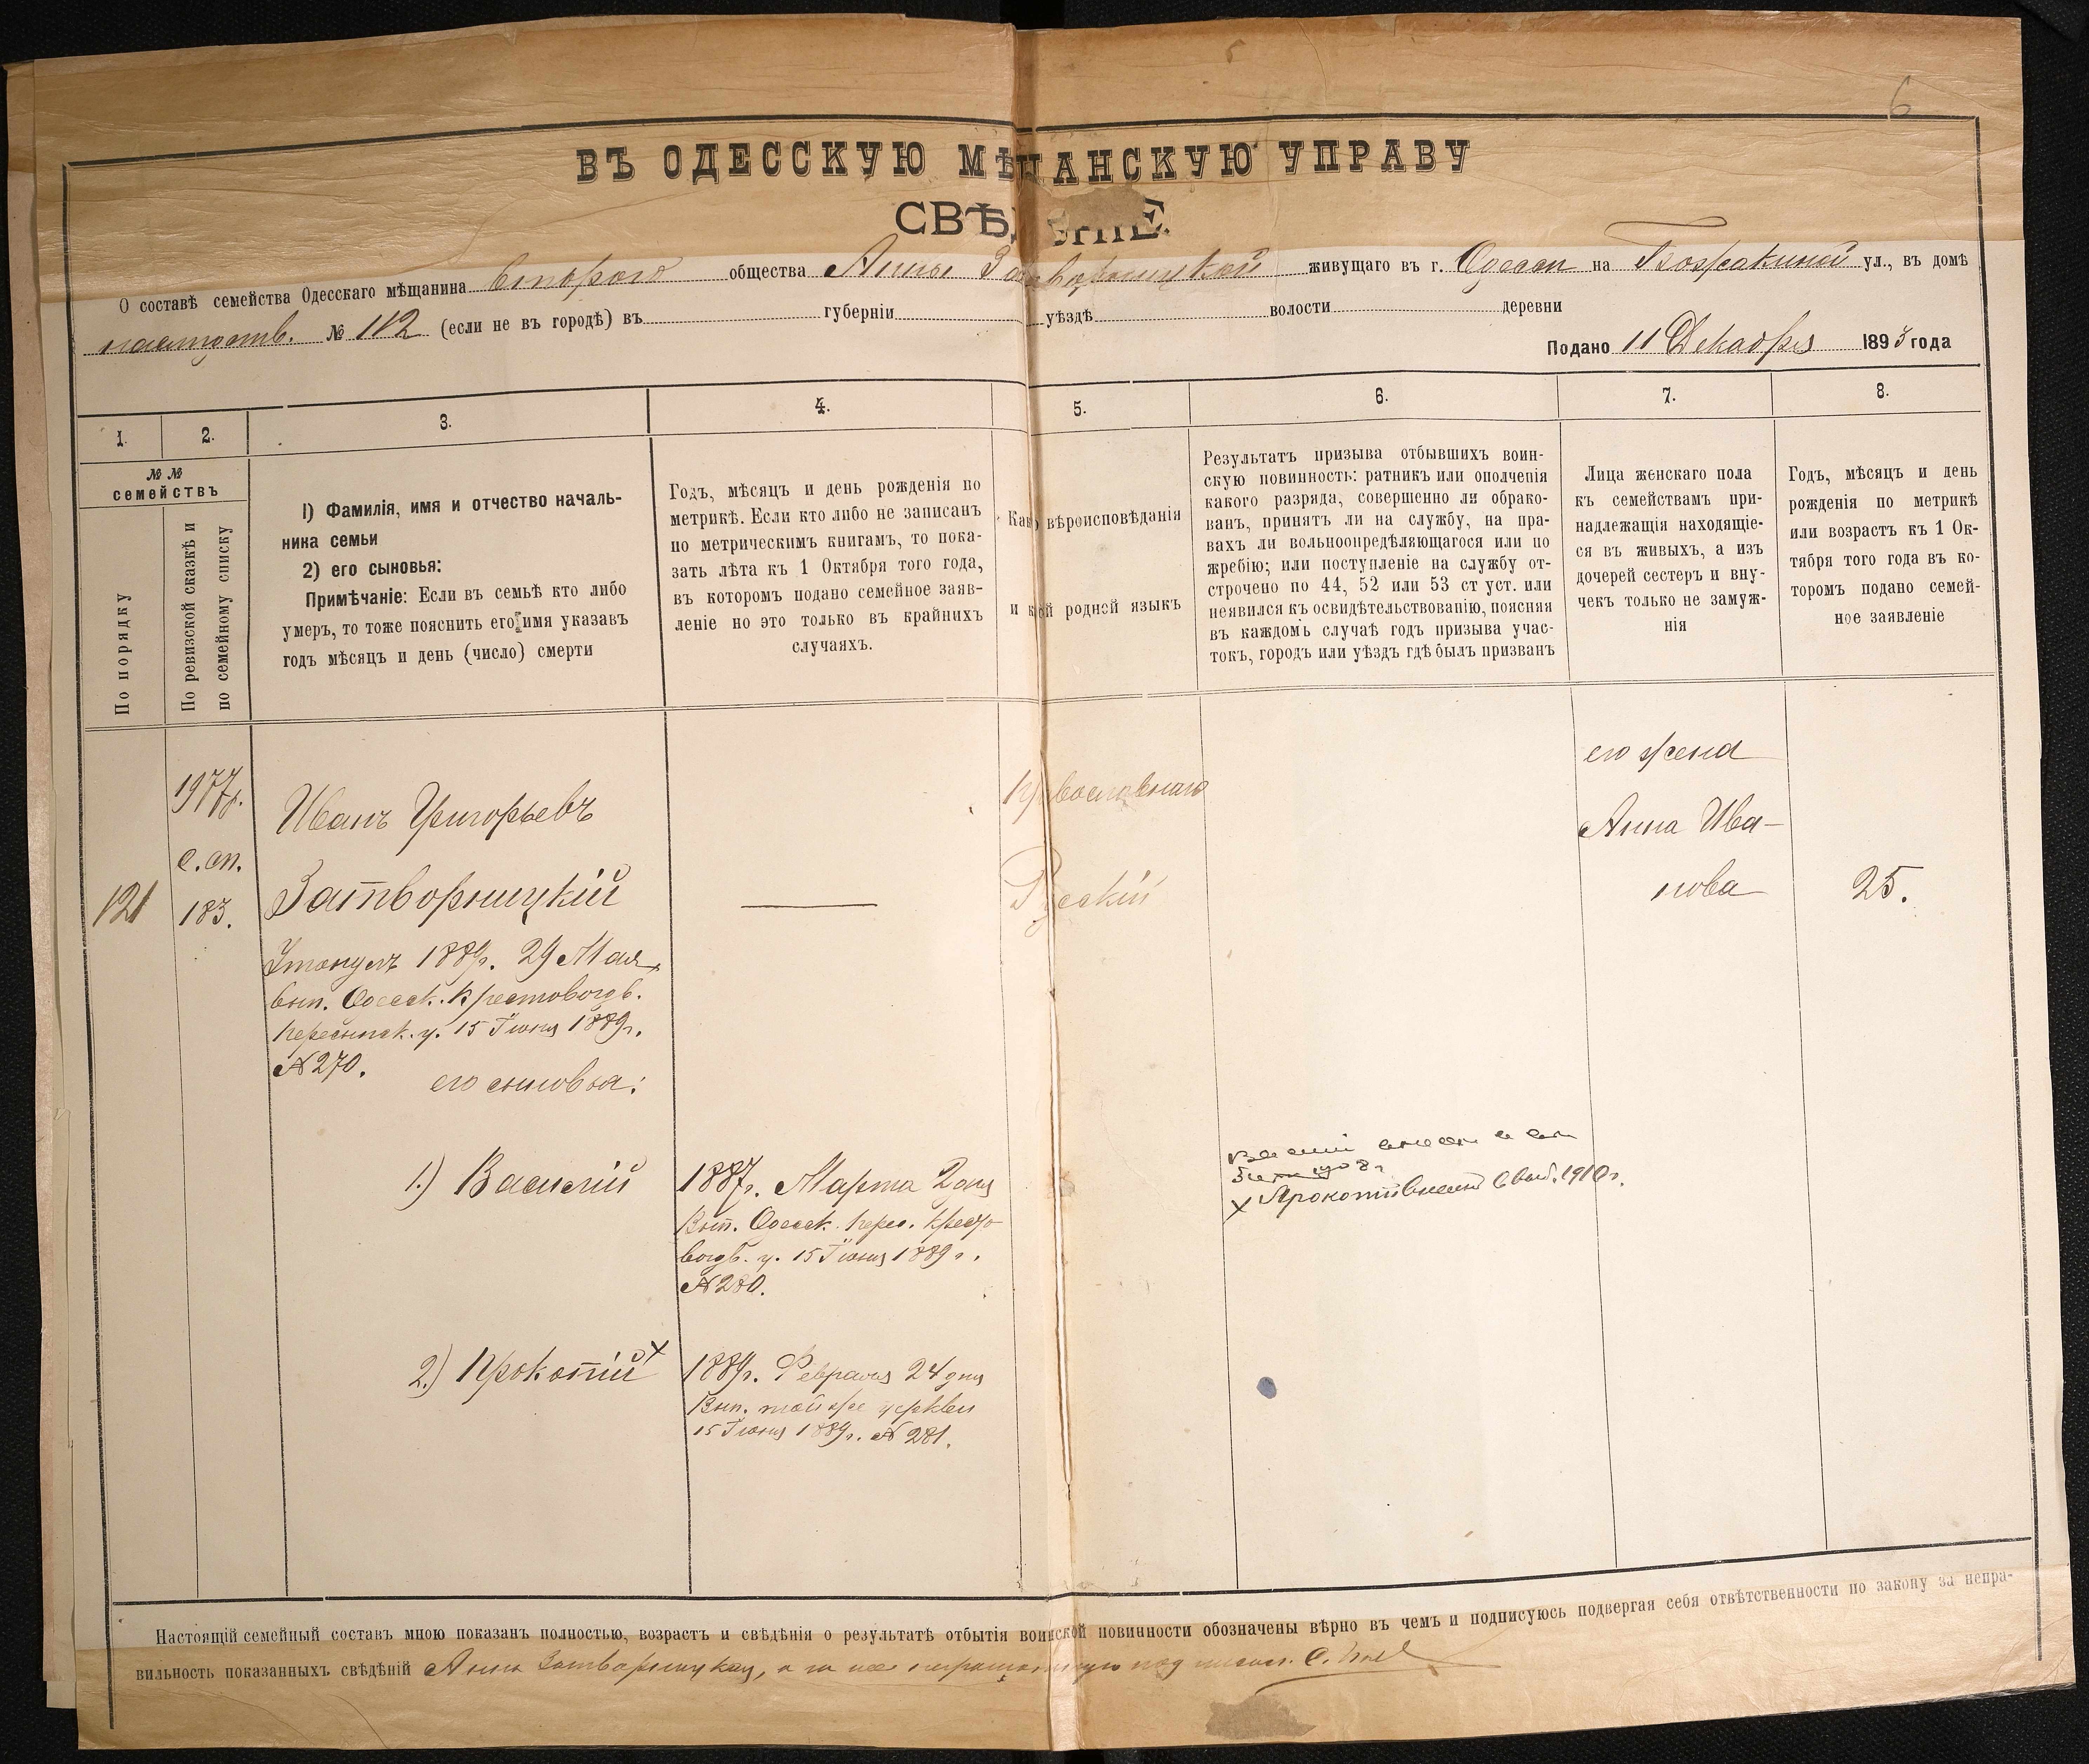 6
ВЪ ОДЕССКУЮ МѢЩАНСКУЮ УПРАВУ
СВѢ НІЕ.
О составѣ семейства Одесскаго мѣщанина Второго общества Анны Затворницкой живущаго въ г. Одессѣ на ул., въ домѣ
№ 112 (если не въ городѣ) въ губерніи уѣздѣ волости деревни
Подано 11 Декабря 1893 года
1. 2. 3. 4. 5. 6. 7. 8.
№№
семействъ
По порядку
По ревизской сказкѣ и
по семейному списку
1) Фамилія, имя и отчество началь-
ника семьи
2) его сыновья:
Примѣчаніе: Если въ семьѣ кто либо
умеръ, то тоже пояснить его имя указавъ
годъ мѣсяцъ и день (число) смерти
Годъ, мѣсяцъ и день рожденія по
метрикѣ. Если кто либо не записанъ
по метрическимъ книгамъ, то пока-
зать лѣта къ 1 Октября того года,
въ которомъ подано семейное заяв-
леніе но это только въ крайнихъ
случаяхъ.
Какъ вѣроисповѣданія
и кой родной языкъ
Результатъ призыва отбывшихъ воин-
скую повинность: ратникъ или ополченія
какого разряда, совершенно ли обрако-
ванъ, принятъ ли на службу, на пра-
вахъ ли вольноопредѣляющагося или по
жребію; или поступленіе на службу от-
строчено по 44, 52 или 53 ст уст. или
неявился къ освидѣтельствованію, поясняя
въ каждомъ случаѣ годъ призыва учас-
токъ, городъ или уѣздъ гдѣ былъ призванъ
Лица женскаго пола
къ семействамъ при-
надлежащія находящіе-
ся въ живыхъ, а изъ
дочерей сестеръ и вну-
чекъ только не замуж-
нія
Годъ, мѣсяцъ и день
рожденія по метрикѣ
или возрастъ къ 1 Ок-
тября того года въ ко-
торомъ подано семей-
ное заявленіе
121
1977г.
с.сп.
183.
Иванъ Григорьевъ
Затворницкій
Утонулъ 1889г. 29 Мая,
вып. Одесск. Крестовоздв.
Пересыпск. ц. 15 Іюня 1889г.
№ 270.
его сыновья:
1.) Василій
2.) Прокопій х
1887г. Марта 2 дня
Вып. Одесск. Перес. Кресто-
воздв. ц. 15 Іюня 1889г.
№ 280.
1889г. Февраля 24 дня
Вып. той же церкви
15 Іюня 1889г. № 281.
Православнаго
Русскій
1908г
х Прокопій 1910г.
его жена
Анна Ива-
нова
25.
Настоящій семейный составъ мною показанъ полностью, возрастъ и свѣдѣнія о результатѣ отбытія воинской повинности обозначены вѣрно въ чемъ и подписуюсь подвергая себя отвѣтственности по закону за непра-
вильность показанныхъ свѣдѣній Анна Затворницкая, а за нее неграмотную